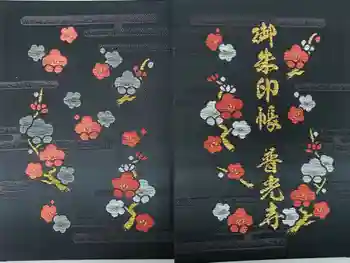 御朱印帳 普光寺